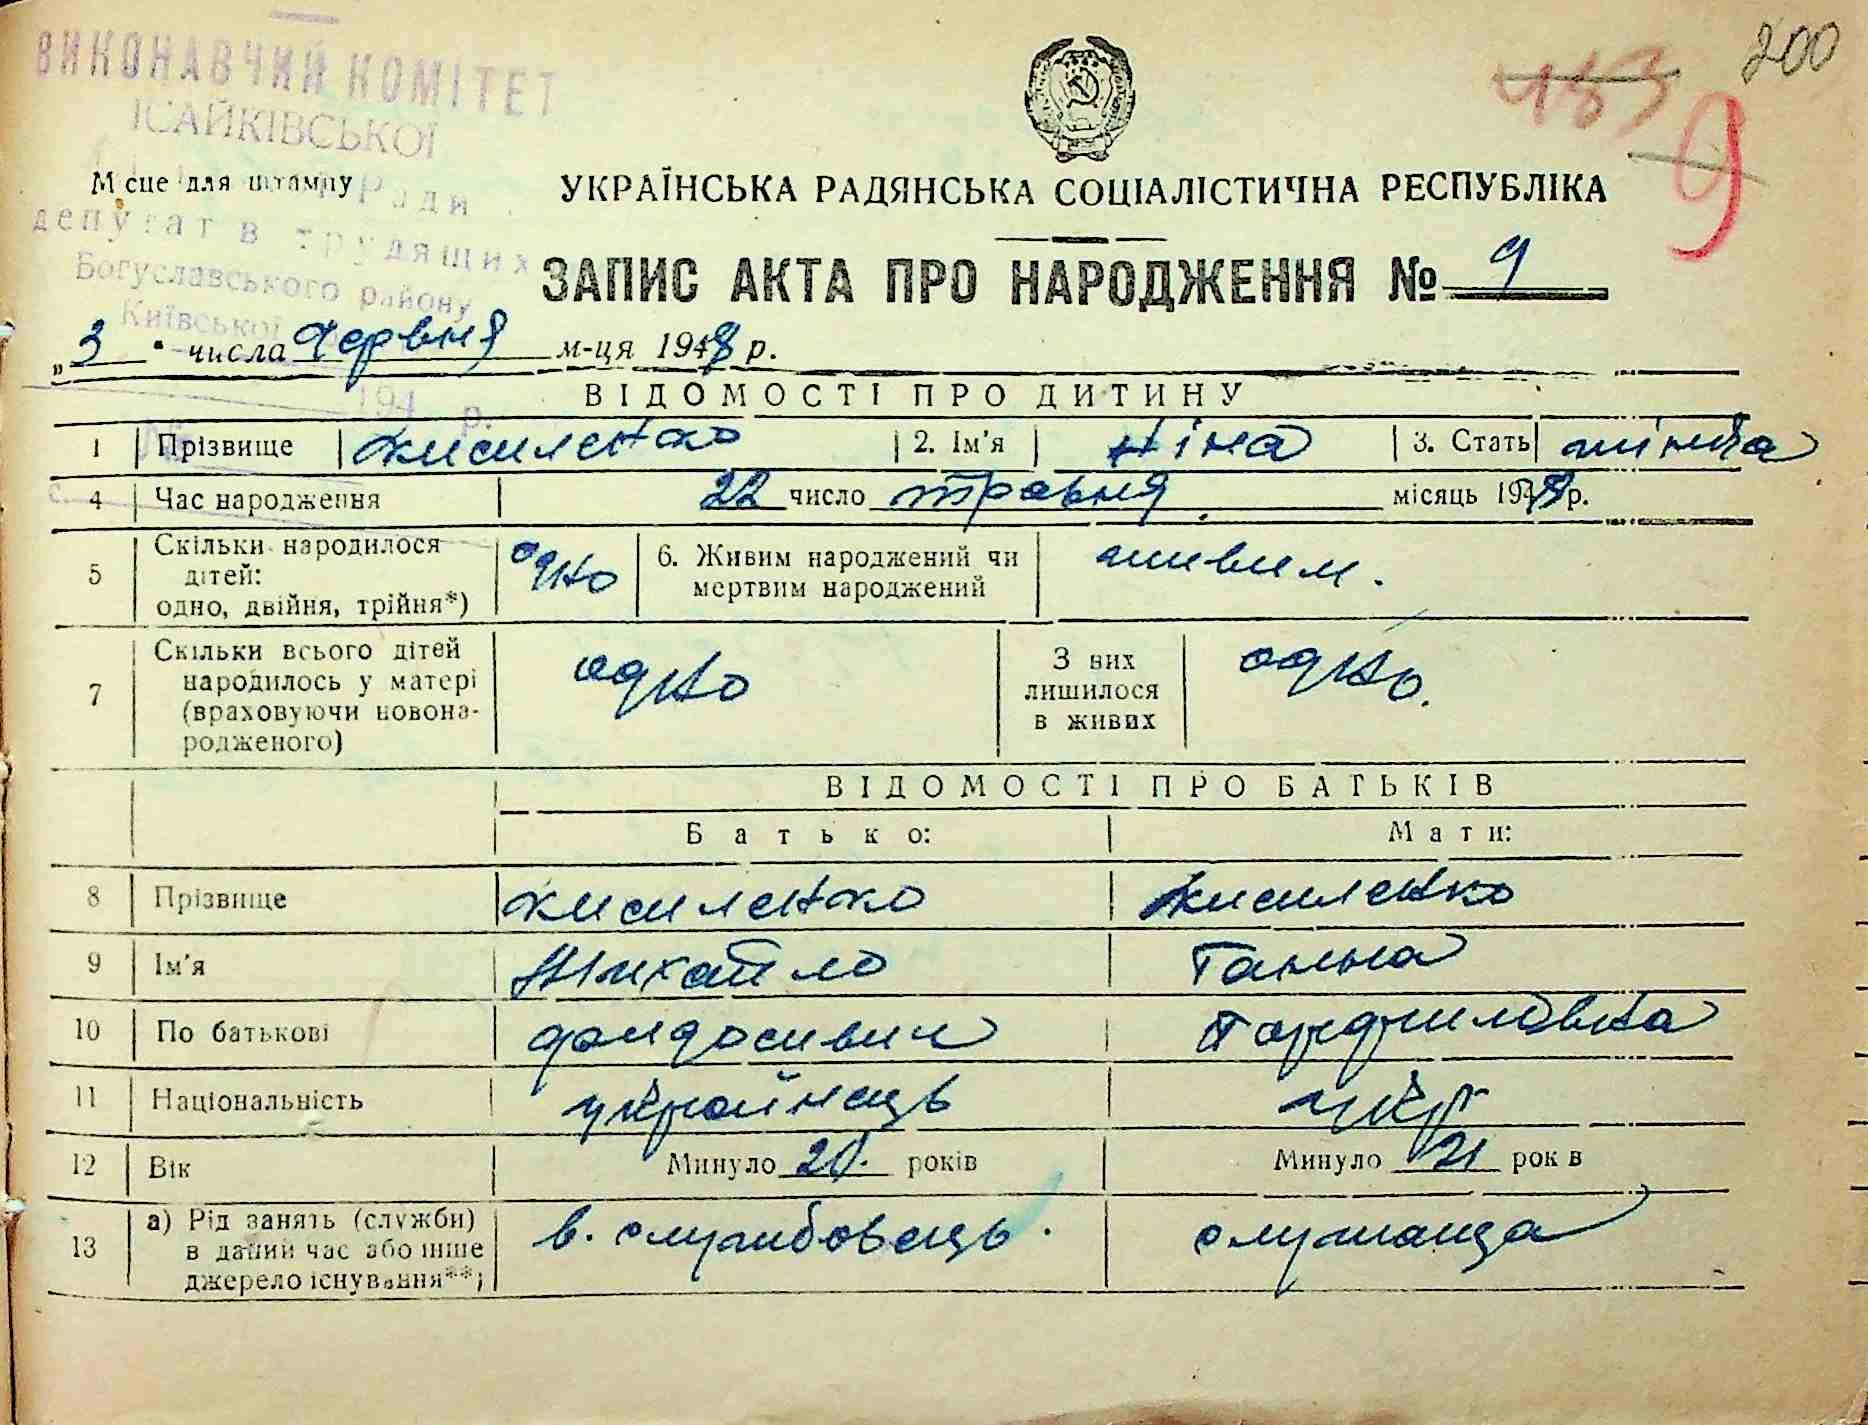 200
483
9
ВИКОНАВЧИЙ КОМІТЕТ
ІСАЙКІВСЬКОЇ
ради
депутатів трудящих
Богуславського району
Київської
194 р.
Місце для штампу
УКРАЇНСЬКА РАДЯНСЬКА СОЦІАЛІСТИЧНА РЕСПУБЛІКА
ЗАПИС АКТА ПРО НАРОДЖЕННЯ № 9
„3" числа Червня м-ця 1948 р.
ВІДОМОСТІ ПРО ДИТИНУ
1 Прізвище Кисиленко 2. Ім'я Ніна 3. Стать жіноча
4 Час народження 22 число травня місяць 1948 р.
5 Скільки народилося дітей: одно, двійня, трійня*) одно 6. Живим народжений чи мертвим народжений живим.
7 Скільки всього дітей народилось у матері (враховуючи новонародженого) одно З них лишилося в живих одно.
ВІДОМОСТІ ПРО БАТЬКІВ
Батько: Мати:
8 Прізвище Кисиленко Кисиленко
9 Ім'я Михайло Ганна
10 По батькові
11 Національність українець укр
12 Вік Минуло років Минуло 21 років
13 а) Рід занять (служби) в даний час або інше джерело існування**; в. службовець. служаща